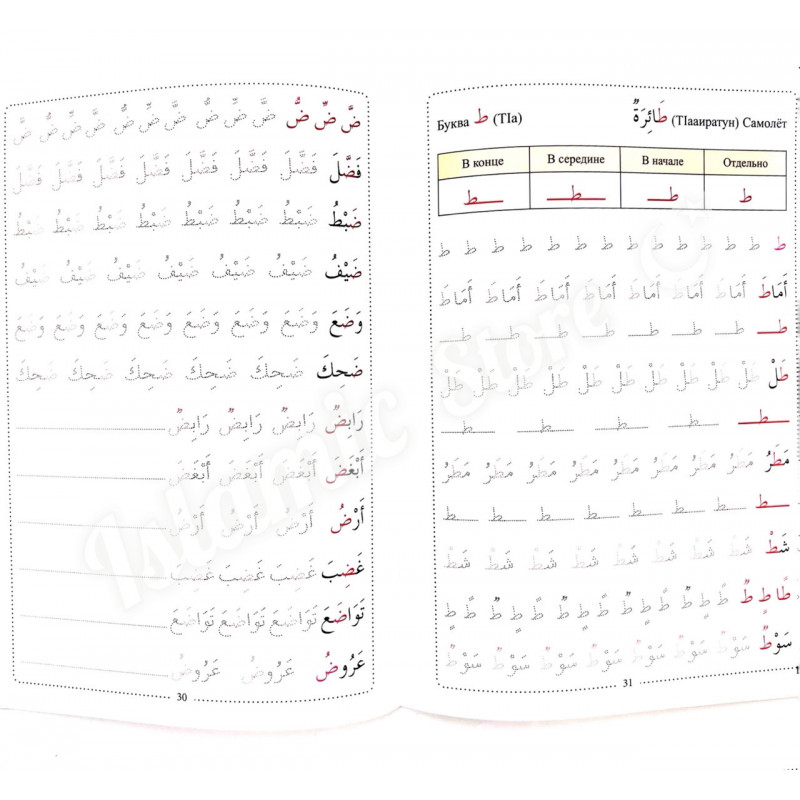 ضَّ ضِّ ضُّ ضَّ ضِّ ضُّ ضَّ ضِّ ضُّ ضَّ ضِّ ضُّ ضَّ
فَضَّلَ فَضَّلَ فَضَّلَ فَضَّلَ فَضَّلَ فَضَّلَ فَضَّلَ
ضَبْطُ ضَبْطُ ضَبْطُ ضَبْطُ ضَبْطُ ضَبْطُ ضَبْطُ
ضَيْفُ ضَيْفُ ضَيْفُ ضَيْفُ ضَيْفُ ضَيْفُ ضَيْفُ
وَضَعَ وَضَعَ وَضَعَ وَضَعَ وَضَعَ وَضَعَ وَضَعَ وَضَعَ
ضَحِكَ ضَحِكَ ضَحِكَ ضَحِكَ ضَحِكَ ضَحِكَ
رَابِضٌ رَابِضٌ رَابِضٌ رَابِضٌ
أَبْغَضَ أَبْغَضَ أَبْغَضَ أَبْغَضَ
أَرْضُ أَرْضُ أَرْضُ أَرْضُ
غَضِبَ غَضِبَ غَضِبَ غَضِبَ
تَوَاضَعَ تَوَاضَعَ تَوَاضَعَ تَوَاضَعَ
عَرُوضُ عَرُوضُ عَرُوضُ
30
Буква ط (ТIа) طَائِرَةٌ (ТIааиратун) Самолёт
В конце В середине В начале Отдельно
ـط ـطـ طـ ط
ط ط ط ط ط ط ط ط ط ط ط ط
أَمَاطَ أَمَاطَ أَمَاطَ أَمَاطَ أَمَاطَ أَمَاطَ أَمَاطَ
طـ طـ طـ طـ طـ طـ طـ طـ
طَلْ طَلْ طَلْ طَلْ طَلْ طَلْ طَلْ طَلْ طَلْ
ـطـ ـطـ ـطـ ـطـ ـطـ ـطـ
مَطَرُ مَطَرُ مَطَرُ مَطَرُ مَطَرُ مَطَرُ مَطَرُ مَطَرُ
ـط ـط ـط ـط ـط ـط ـط ـط
شَطْ شَطْ شَطْ شَطْ شَطْ شَطْ شَطْ شَطْ
طًا طٍ طٌ
سَوْطٌ سَوْطٌ سَوْطٌ سَوْطٌ سَوْطٌ سَوْطٌ سَوْطٌ سَوْطٌ
31
Islamic Store